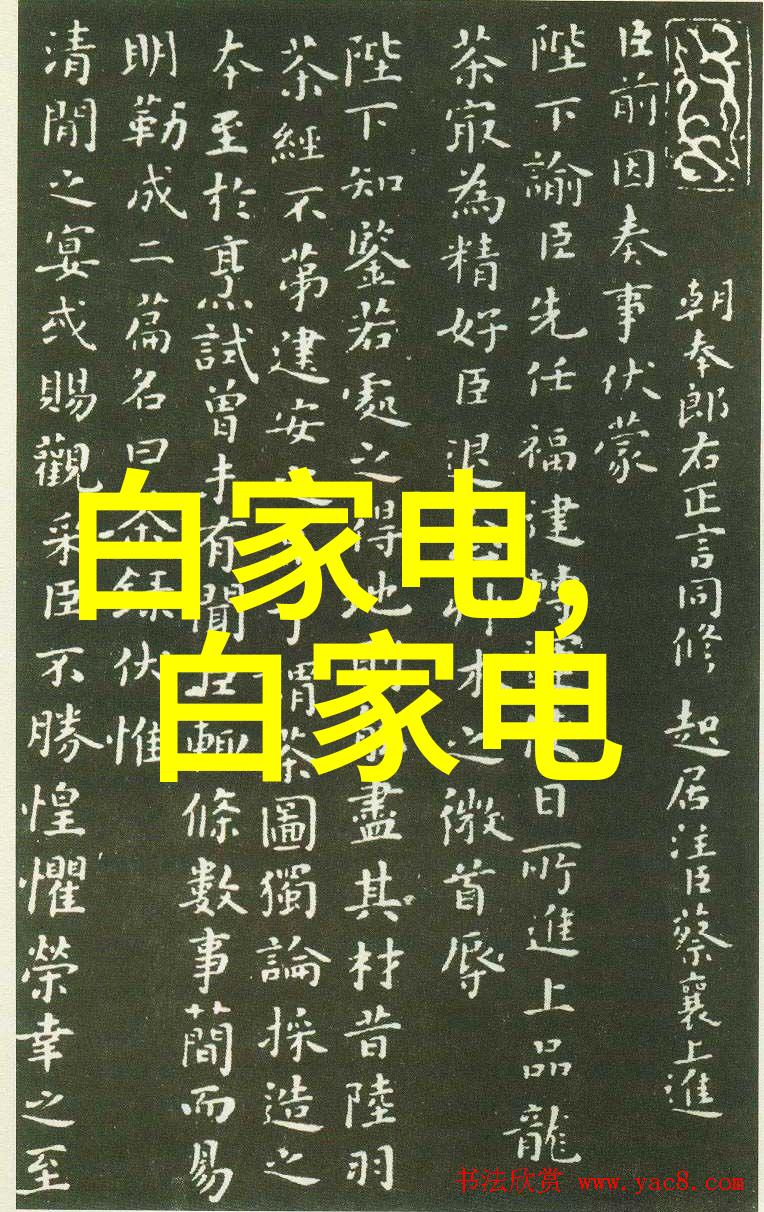 朝奉郎右正言同修起居注臣蔡襄上進
臣前因奏事伏蒙
陛下諭臣先任福建轉日所進上品龍
茶㝡為精好臣退之微首辱
陛下知鑒若處之得地盡其材昔陸羽
茶經不第建安謂茶圖獨論採造之
本至於烹試曾未有聞臣輒條數事簡而易
明勒成二篇名曰茶録伏惟
清閒之宴或賜觀采臣不勝惶懼榮幸之至
白家电,
白家电
书法欣赏 www.yac8.com